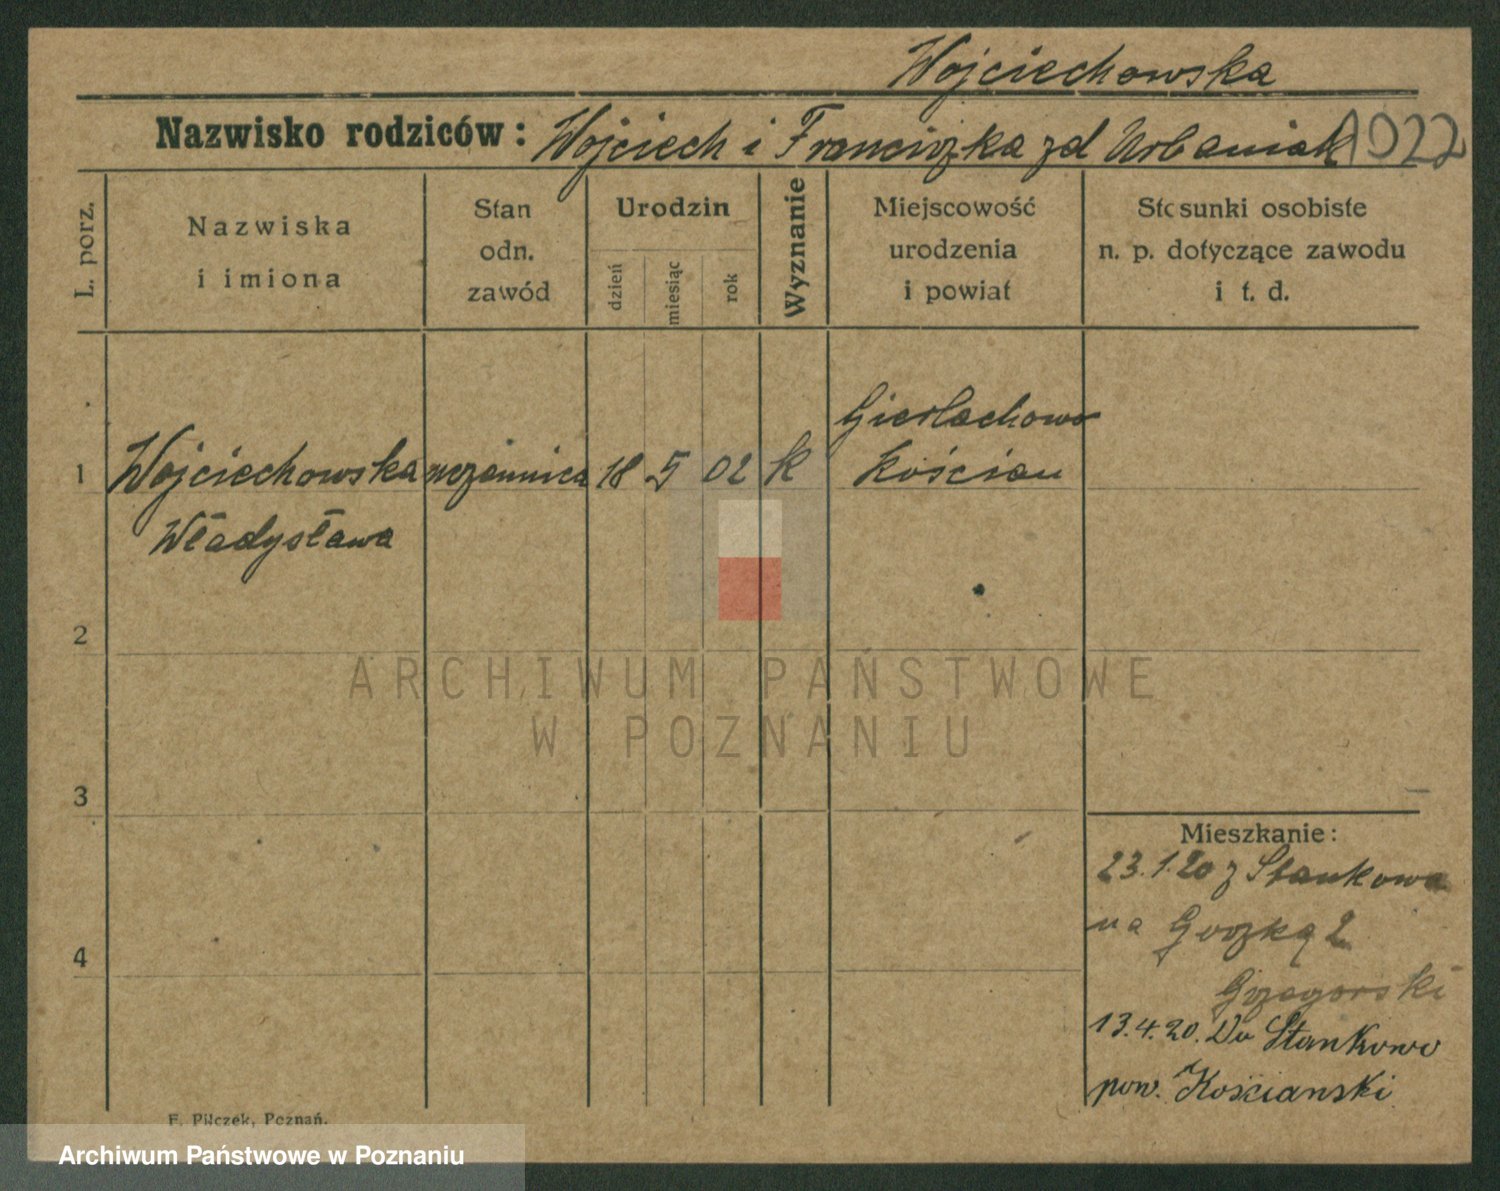 Wojciechowska
Nazwisko rodziców: Wojciech i Franciszka zd Urbaniak 1022
L. porz.
Nazwiska
i imiona
Stan
odn.
zawód
Urodzin
dzień
miesiąc
rok
Wyznanie
Miejscowość
urodzenia
i powiat
Stosunki osobiste
n. p. dotyczące zawodu
i t. d.
1
Wojciechowska
Władysława
uczennica
18 5 02
k
Gierłachowo
Kościan
2
3
4
Mieszkanie:
23.1.20 z Stankowa
na 2
Grzegorski
13.4.20. Do Stankowo
pow. Kościanski
F. Pilczek, Poznań.
ARCHIWUM PAŃSTWOWE
W POZNANIU
Archiwum Państwowe w Poznaniu